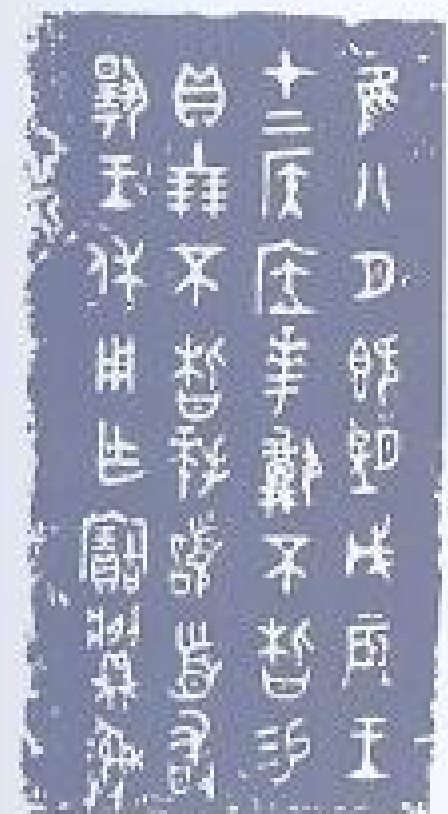 隹八月既望戊辰王
才上侯㡴𠦪祼不栺易
貝十朋不栺拜𩒨首敢
揚王休用乍寶𩰫彝